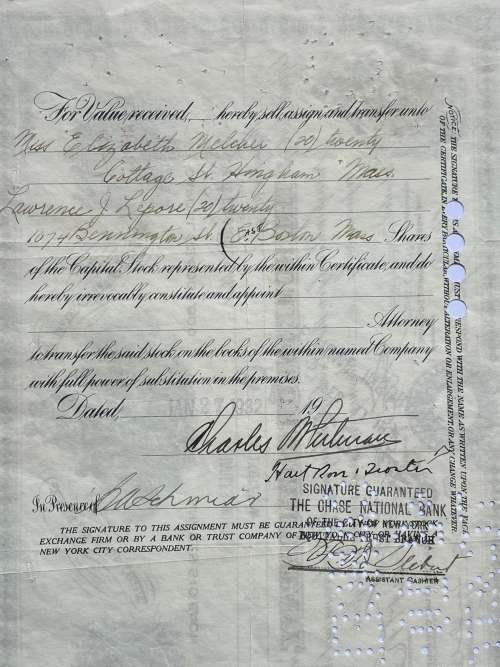 For Value received, hereby sell, assign and transfer unto
Miss Elizabeth Melcher (20) twenty
Cottage St. Hingham Mass.
Lawrence J. Lepore (20) twenty
1074 Bennington St. (East Boston Mass Shares
of the Capital Stock represented by the within Certificate, and do
hereby irrevocably constitute and appoint
Attorney
to transfer the said stock on the books of the within named Company
with full power of substitution in the premises.
Dated, 1932 19
Charles
SIGNATURE GUARANTEED
THE CHASE NATIONAL BANK
OF THE CITY OF NEW YORK
In Presence of
THE SIGNATURE TO THIS ASSIGNMENT MUST BE GUARANTEED
EXCHANGE FIRM OR BY A BANK OR TRUST COMPANY OF
NEW YORK CITY CORRESPONDENT.
ASSISTANT CASHIER
NOTICE: THE SIGNATURE
OF THE CERTIFICATE IN EVERY PARTICULAR, WITHOUT ALTERATION OR ENLARGEMENT OR ANY CHANGE WHATEVER.